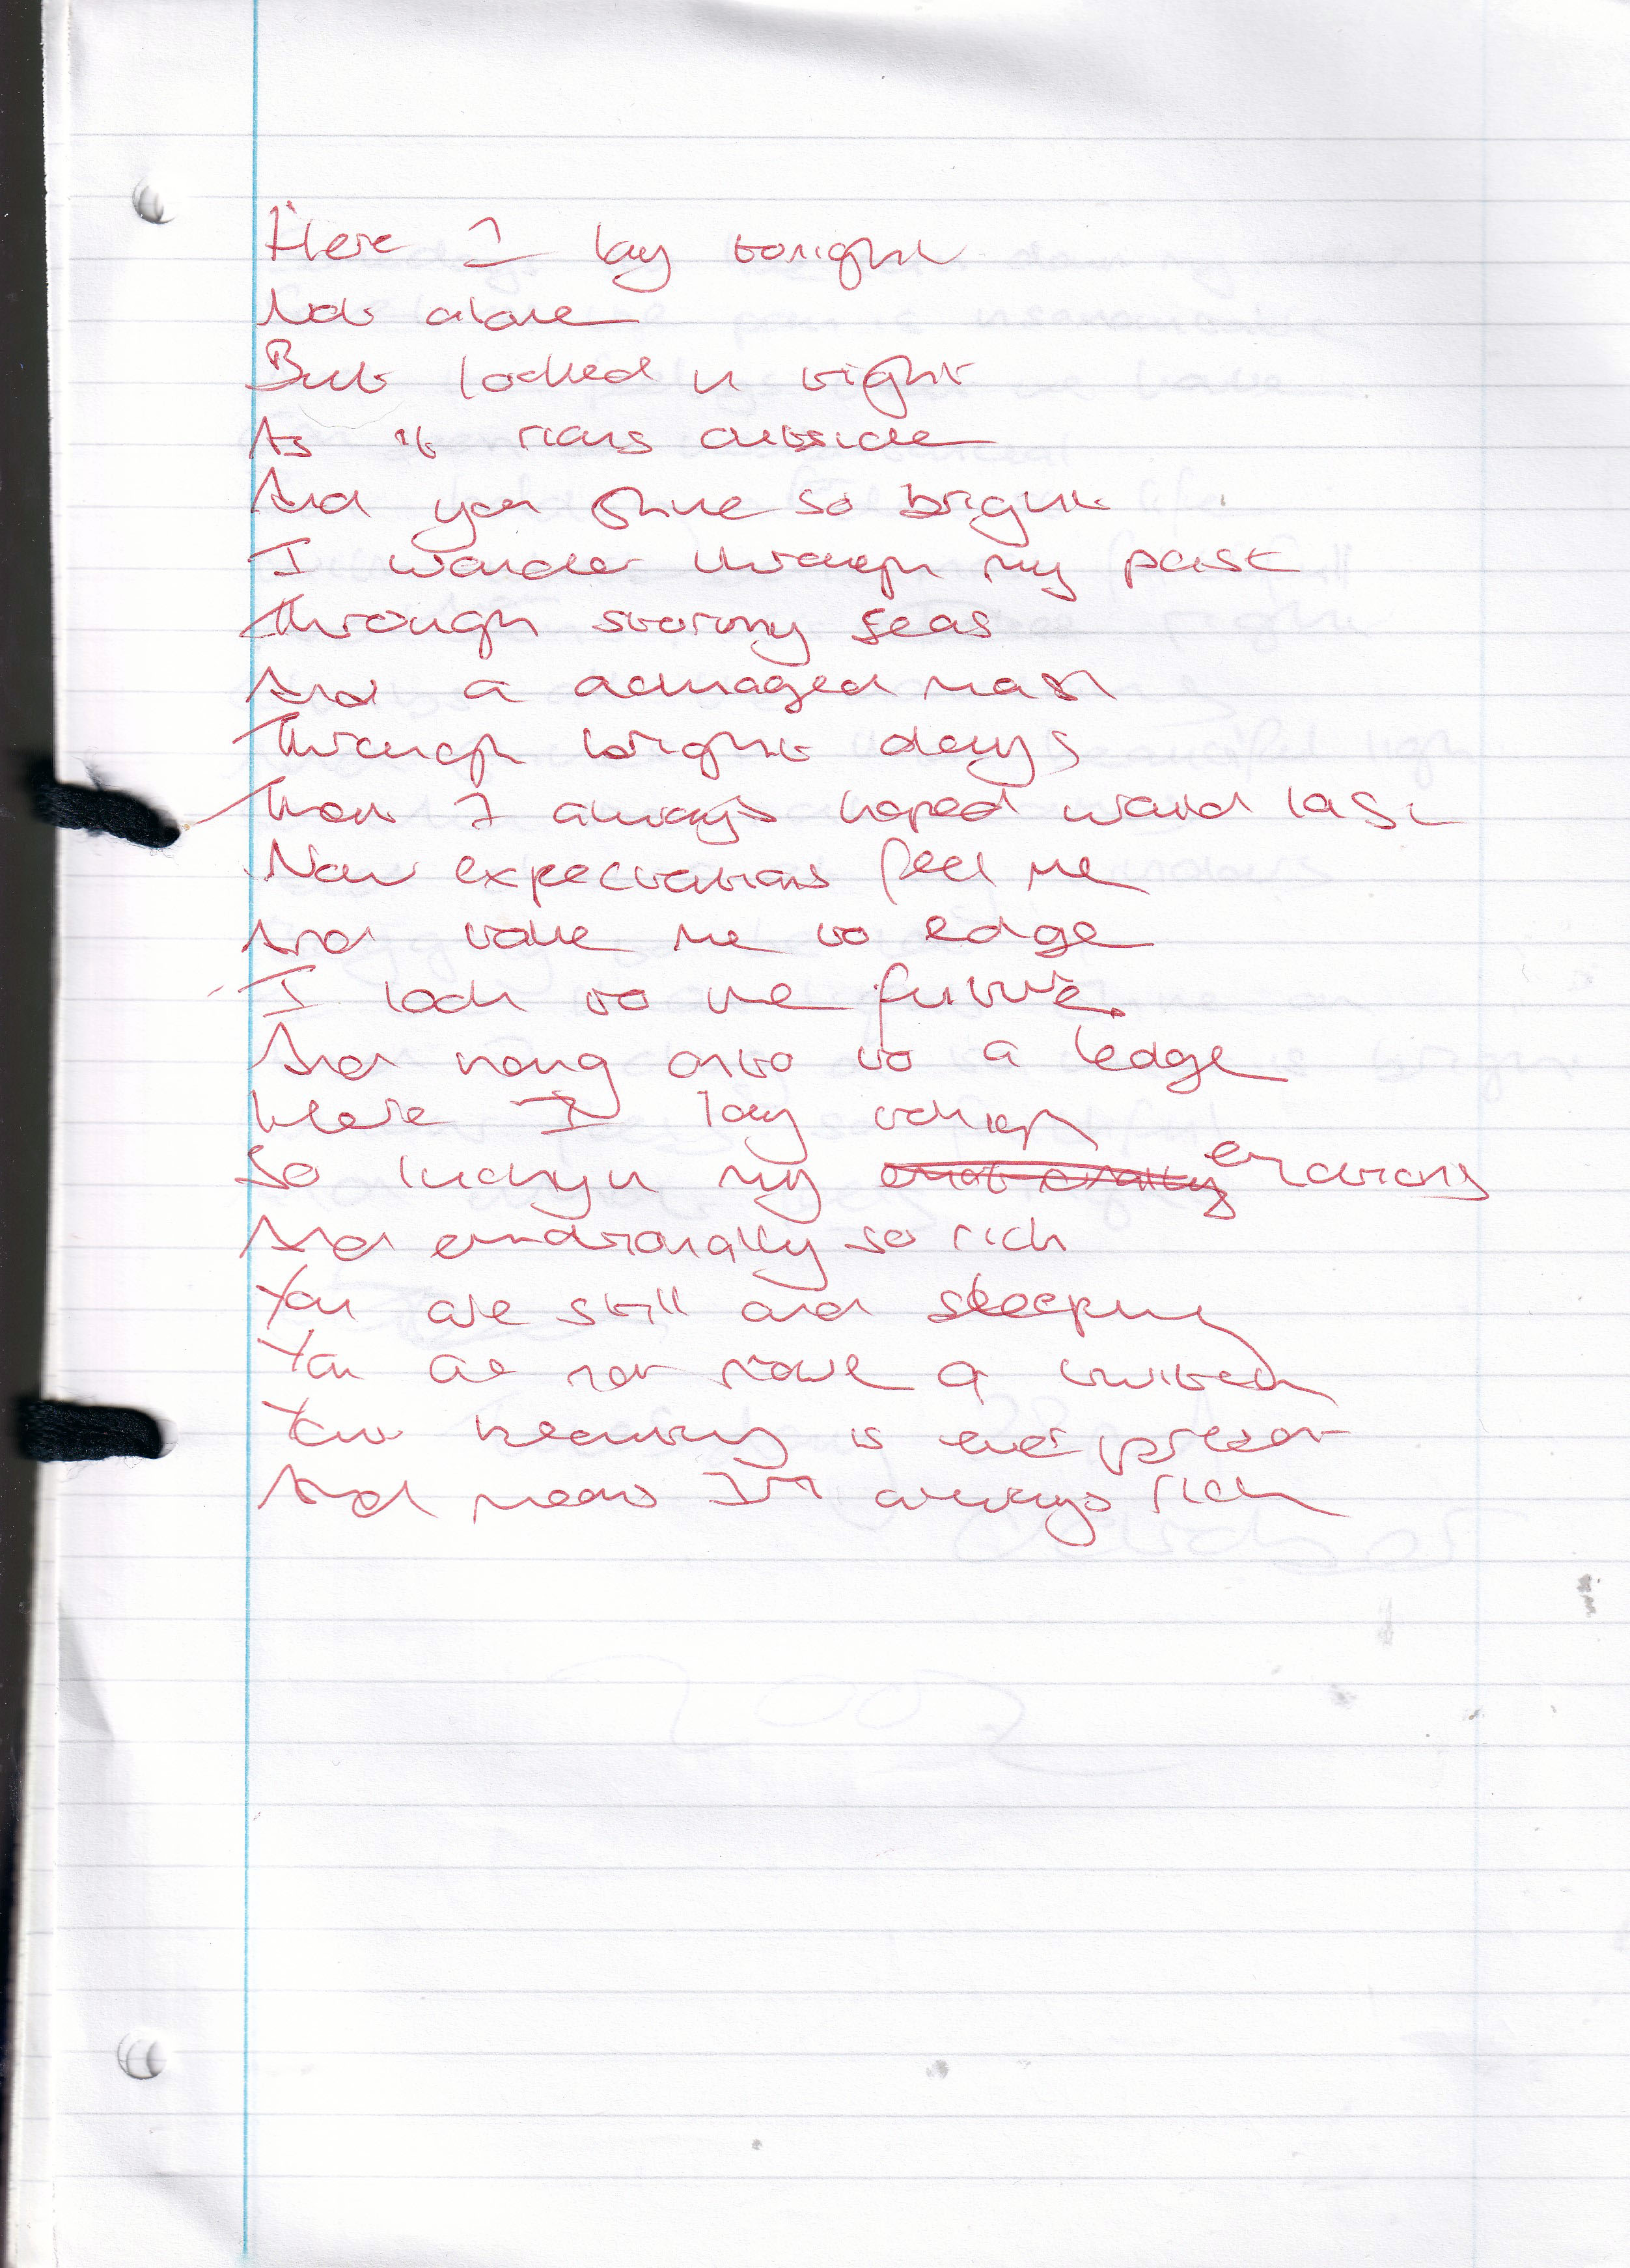 Here I lay tonight
Not alone
But locked in tight
As it rains outside
And you shine so bright
I wander through my past
Through stormy seas
And a damaged mast
Through bright days
That I always hoped would last
Now expectations feel me
And take me to edge
I look to the future
And hang onto to a ledge
Here I lay
So lucky in my emotions
And emotionally so rich
You are still and sleeping
You do not move a twitch
Your beauty is ever present
And means I'm always rich